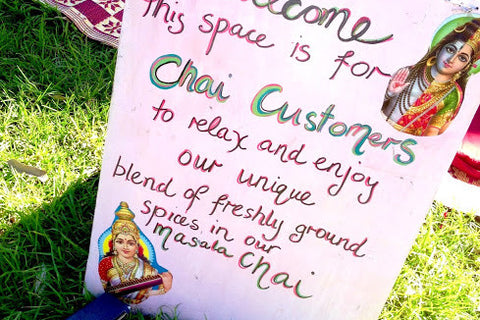 Welcome
This space is for
Chai Customers
to relax and enjoy
our unique
blend of freshly ground
spices in our
Masala Chai